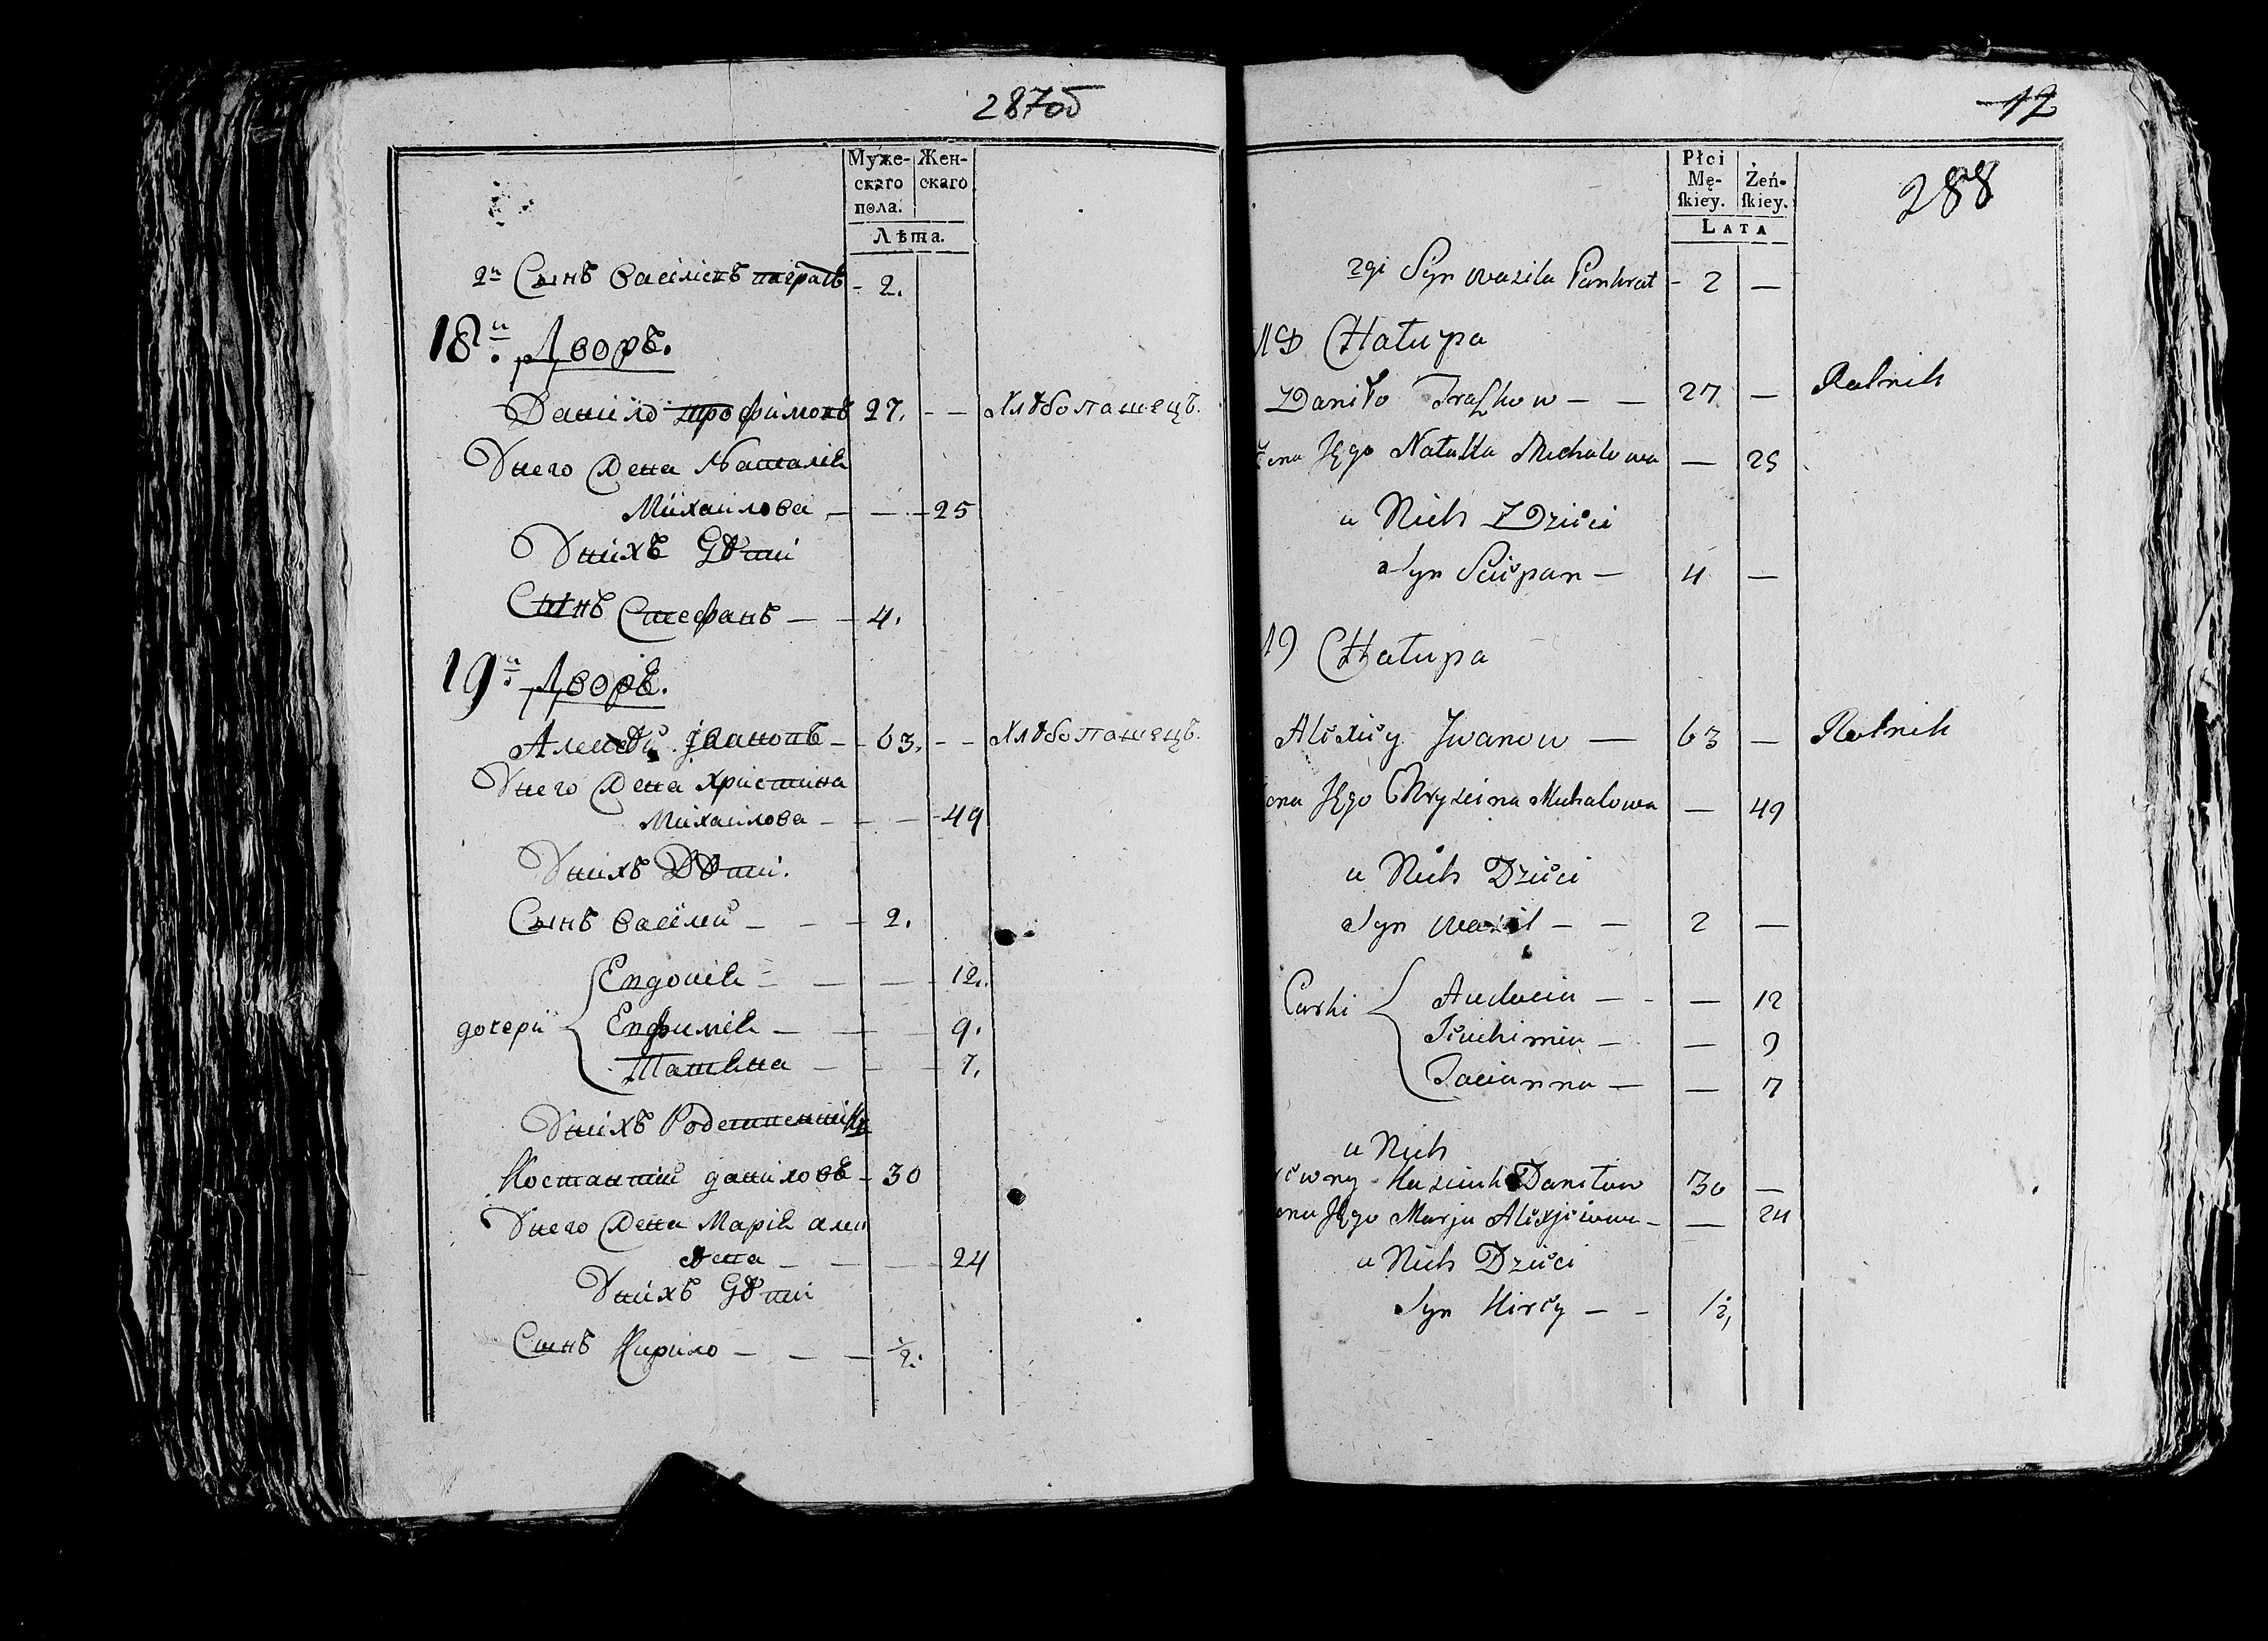 287об
Муже-
скаго
пола.
Жен-
скаго
Лѣта.
2й Сынъ Василіевъ панкратъ - 2.
18й Дворъ.
Данило трофимовъ 27. - - Хлѣбопашецъ.
Унего Жена Наталія
Михайлова - - - 25
Унихъ Дѣти
Сынъ Стефанъ - - 4.
19й Дворъ.
Алексѣй Івановъ - 63. - - Хлѣбопашецъ.
Унего Жена Христина
Михайлова - - - 49
Унихъ Дѣти.
Сынъ Василий - - - 2.
Евдокія - - - 12.
дочери Евфимія - - 9.
Татіяна - - - 7.
Унихъ
Костантий даниловъ - 30
Унего Жена Марія але
ѣева - - - 24
Унихъ Дѣти
Сынъ Кирило - - - 1/2.
12
288
Płci
Mę-
ſkiey.
Żeń-
ſkiey.
LATA
2gi Syn Wasila Pankrat - 2 —
18 CHałupa
Daniło Traſkow — — 27 — Rolnik
żena Jego Natalla Michałowa — 25
u Nich Dzieci
Syn Sciepan — 4 —
19 CHałupa
Alexiey Jwanow — 63 — Rolnik
żona Jego Chryscina Michałowa — 49
u Nich Dzieci
Syn Wasil — — 2 —
Audocia — - — 12
Curki
— — 9
Tacianna — — 7
u Nich
Daniłow 30 —
żona Jego Marja Alexjeiewa - — 24
u Nich Dzieci
Syn Kirey — - 1/2,